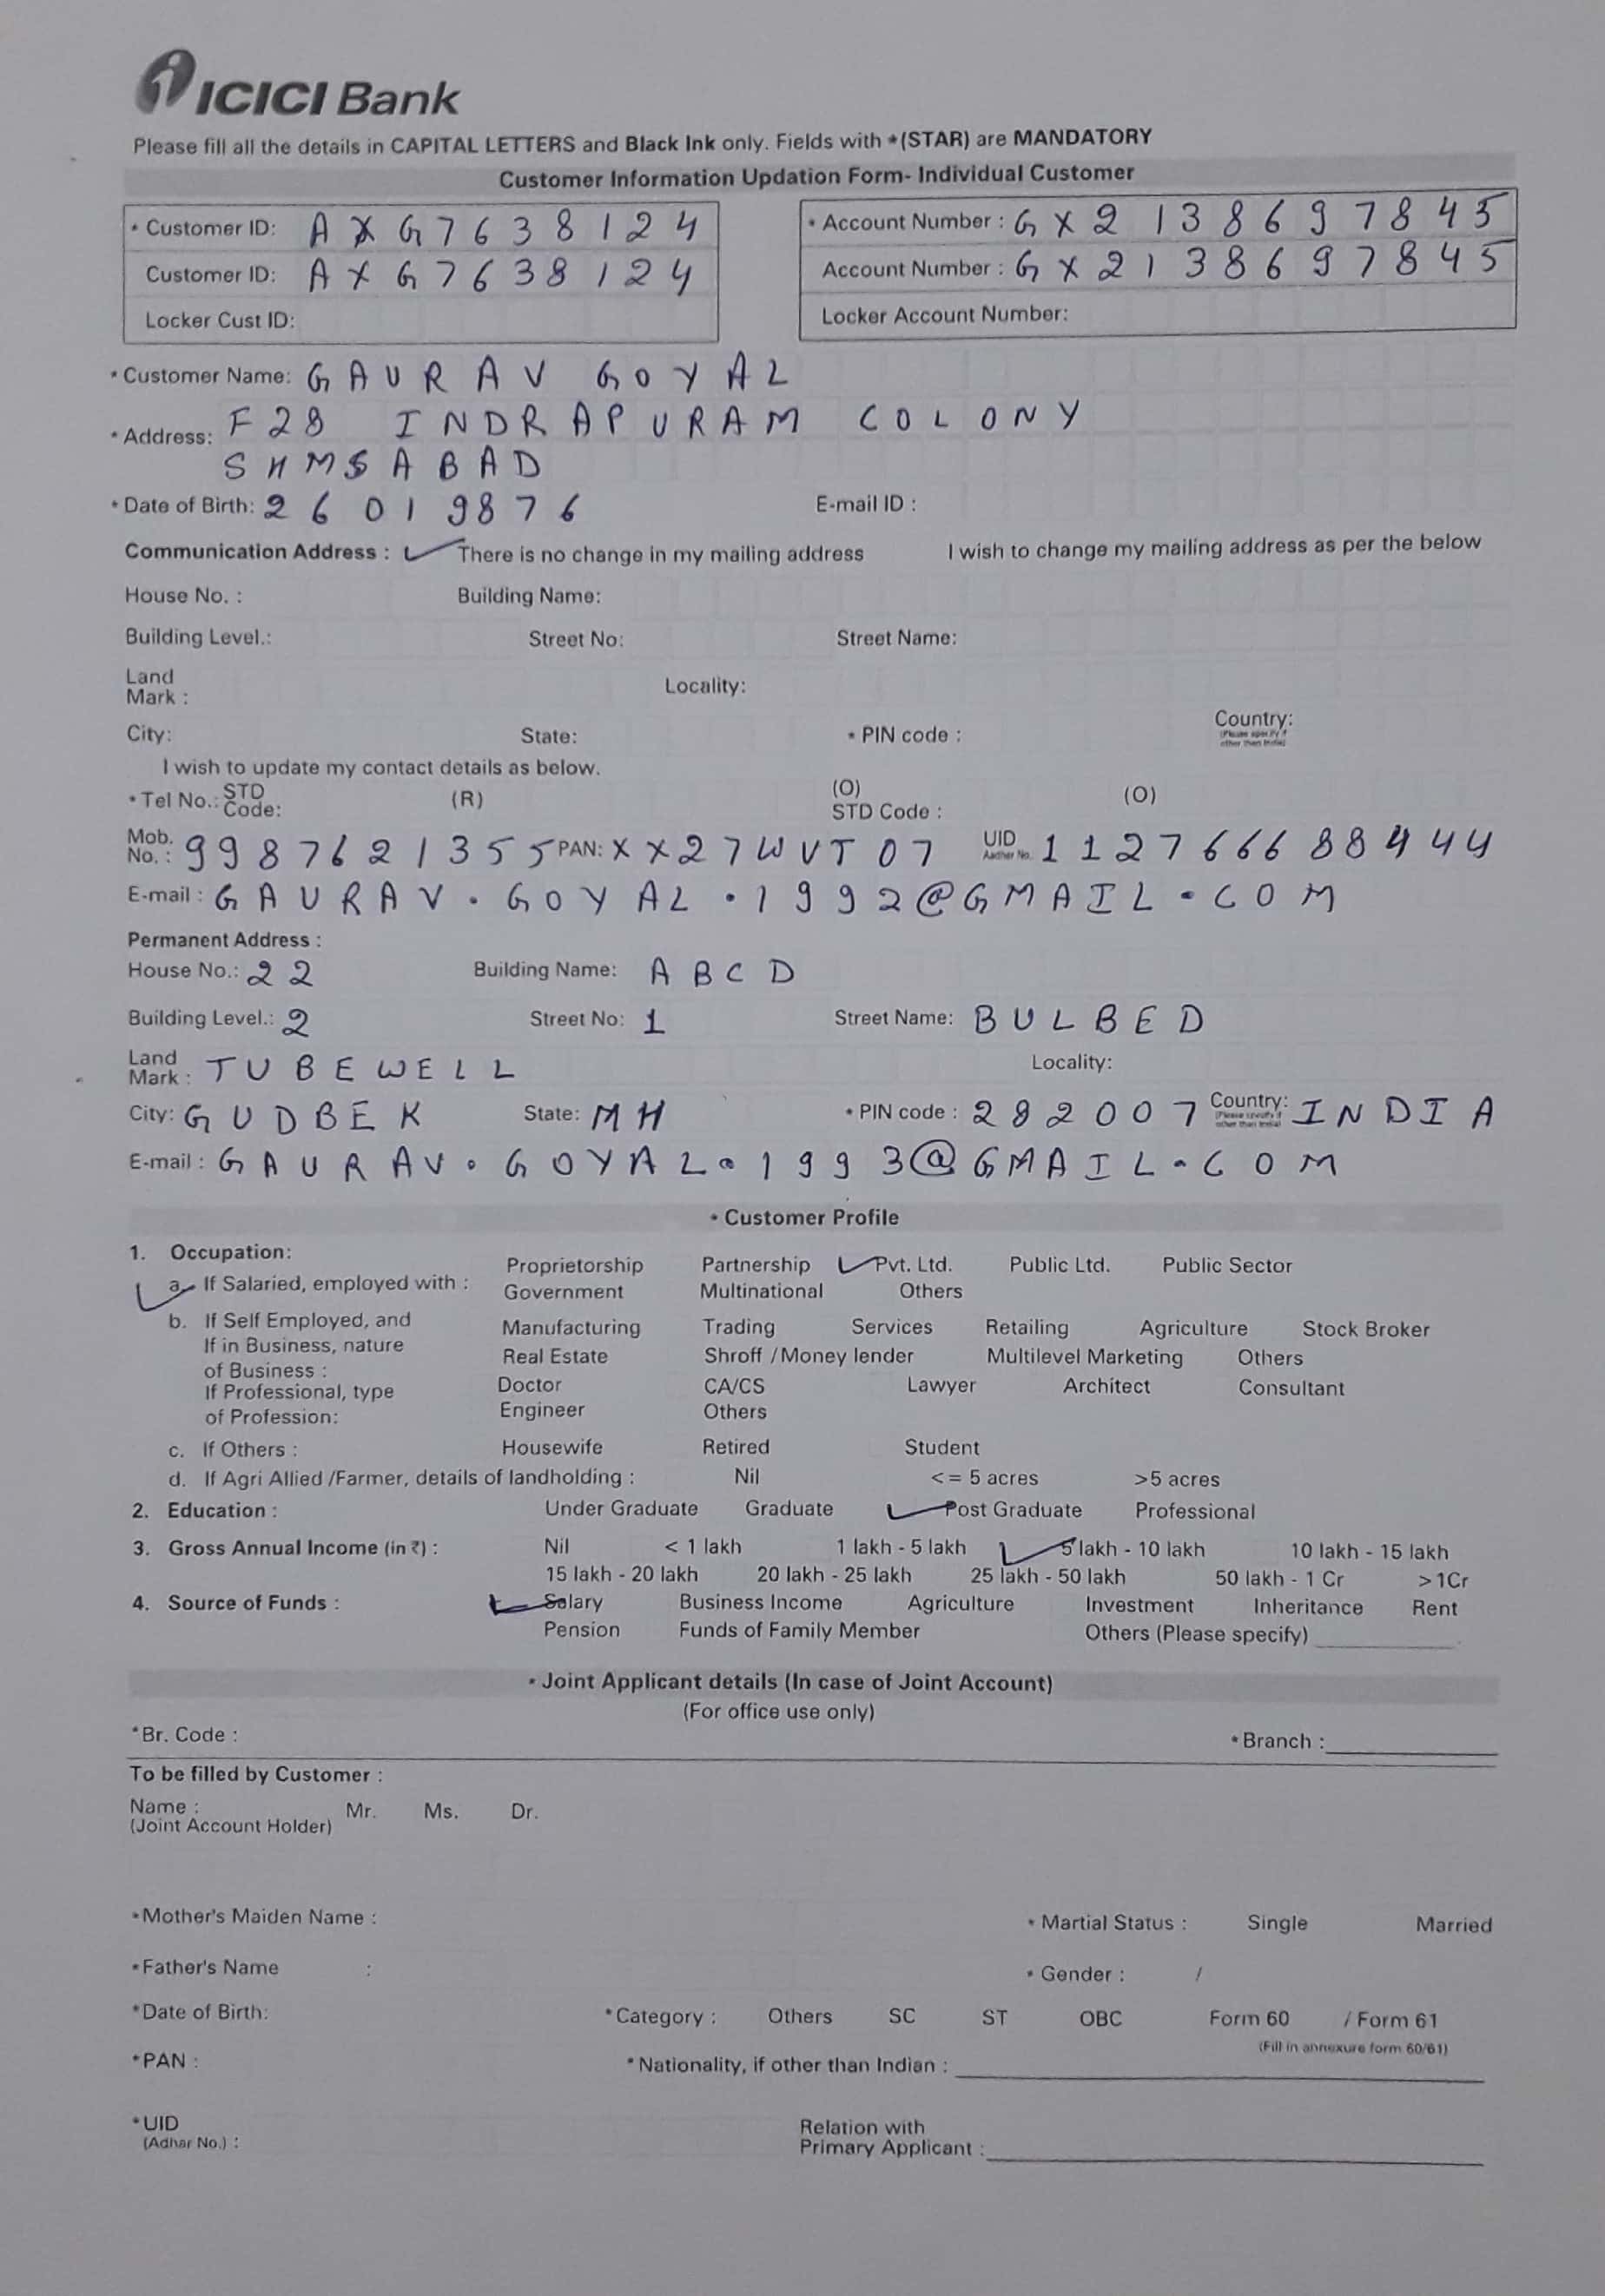 ICICI Bank
Please fill all the details in CAPITAL LETTERS and Black Ink only. Fields with *(STAR) are MANDATORY
Customer Information Updation Form- Individual Customer
* Customer ID: AXG7638124 * Account Number : GX2138697845
Customer ID: AXG7638124 Account Number : GX2138697845
Locker Cust ID: Locker Account Number:
* Customer Name: GAURAV GOYAL
* Address: F28 INDRAPURAM COLONY
SHMSABAD
* Date of Birth: 26019876 E-mail ID :
Communication Address : ✓ There is no change in my mailing address I wish to change my mailing address as per the below
House No. : Building Name:
Building Level.: Street No: Street Name:
Land Mark : Locality:
City: State: * PIN code : Country: (Please specify if other than India)
I wish to update my contact details as below.
* Tel No.: STD Code: (R) (O) STD Code : (O)
Mob. No. : 9987621355 PAN: XX27WVT07 UID Aadhar No. 112766688444
E-mail : GAURAV.GOYAL.1992@GMAIL.COM
Permanent Address :
House No.: 22 Building Name: ABCD
Building Level.: 2 Street No: 1 Street Name: BULBED
Land Mark : TUBEWELL Locality:
City: GUDBEK State: MH * PIN code : 282007 Country: (Please specify if other than India) INDIA
E-mail : GAURAV.GOYAL.1993@GMAIL.COM
* Customer Profile
1. Occupation:
✓ a. If Salaried, employed with : Proprietorship Partnership ✓ Pvt. Ltd. Public Ltd. Public Sector
Government Multinational Others
b. If Self Employed, and Manufacturing Trading Services Retailing Agriculture Stock Broker
If in Business, nature Real Estate Shroff / Money lender Multilevel Marketing Others
of Business :
If Professional, type Doctor CA/CS Lawyer Architect Consultant
of Profession: Engineer Others
c. If Others : Housewife Retired Student
d. If Agri Allied /Farmer, details of landholding : Nil <= 5 acres >5 acres
2. Education : Under Graduate Graduate ✓ Post Graduate Professional
3. Gross Annual Income (in ₹) : Nil < 1 lakh 1 lakh - 5 lakh ✓ 5 lakh - 10 lakh 10 lakh - 15 lakh
15 lakh - 20 lakh 20 lakh - 25 lakh 25 lakh - 50 lakh 50 lakh - 1 Cr >1Cr
4. Source of Funds : ✓ Salary Business Income Agriculture Investment Inheritance Rent
Pension Funds of Family Member Others (Please specify)
* Joint Applicant details (In case of Joint Account)
(For office use only)
*Br. Code : * Branch :
To be filled by Customer :
Name : Mr. Ms. Dr.
(Joint Account Holder)
*Mother's Maiden Name : * Martial Status : Single Married
*Father's Name : * Gender : /
*Date of Birth: *Category : Others SC ST OBC Form 60 / Form 61
(Fill in annexure form 60/61)
*PAN : *Nationality, if other than Indian :
*UID Relation with
(Adhar No.) : Primary Applicant :